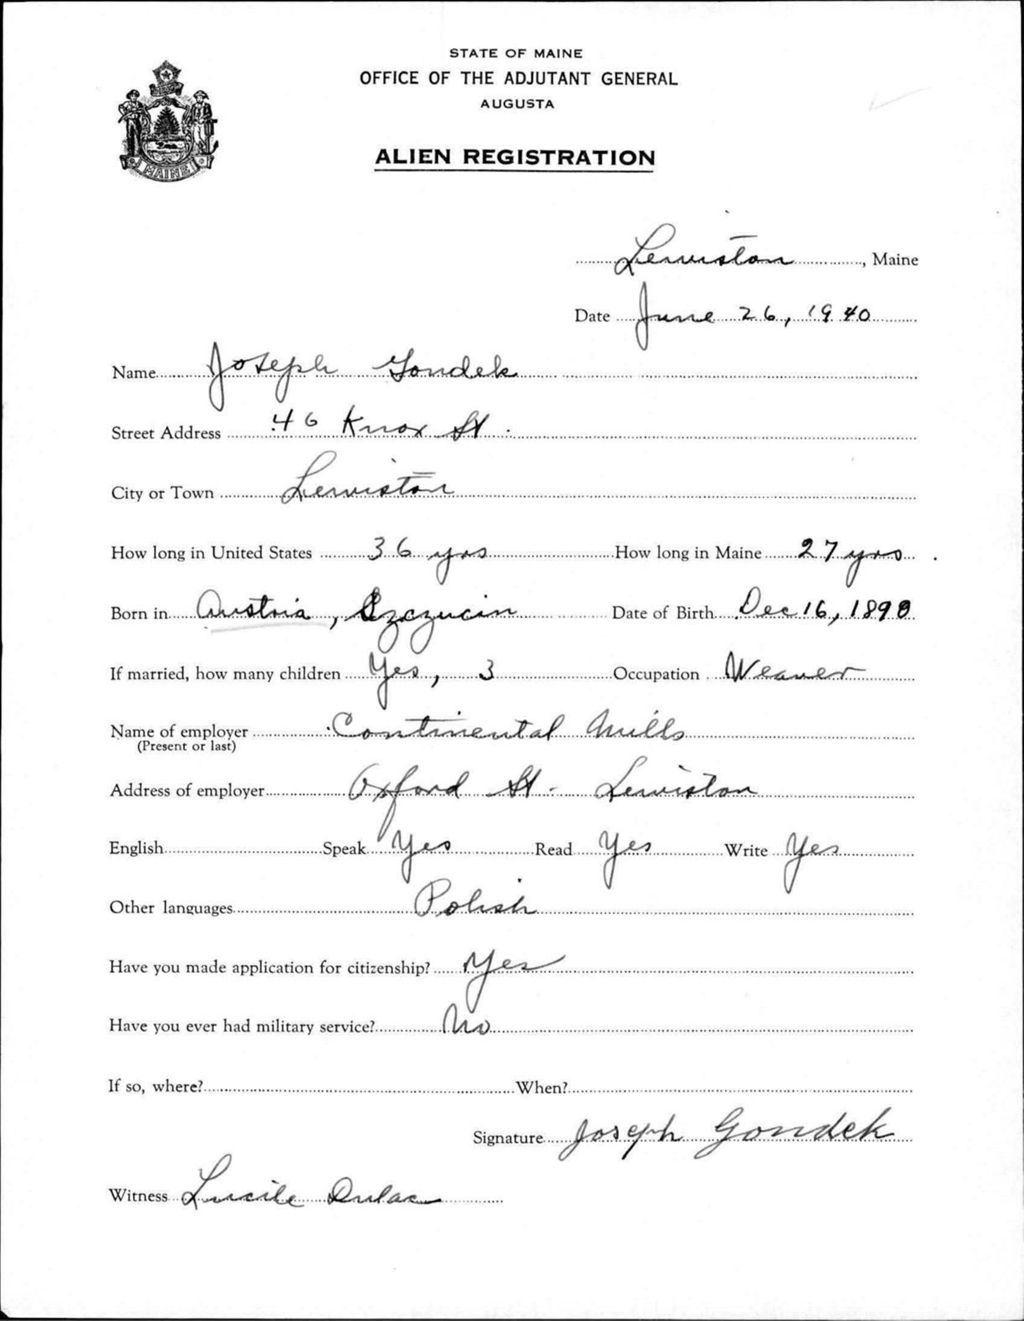 STATE OF MAINE
OFFICE OF THE ADJUTANT GENERAL
AUGUSTA
ALIEN REGISTRATION
MAINE
Lewiston, Maine
Date June 26, 1940
Name Joseph Gondek
Street Address 46 Knox St.
City or Town Lewiston
How long in United States 36 yrs How long in Maine 27 yrs.
Born in Austria, Szczucin Date of Birth Dec 16, 1890
If married, how many children Yes, 3 Occupation Weaver
Name of employer Continental Mills
(Present or last)
Address of employer Oxford St. Lewiston
English Speak Yes Read Yes Write Yes
Other languages Polish
Have you made application for citizenship? Yes
Have you ever had military service? No
If so, where? When?
Signature Joseph Gondek
Witness Lucile Dulac